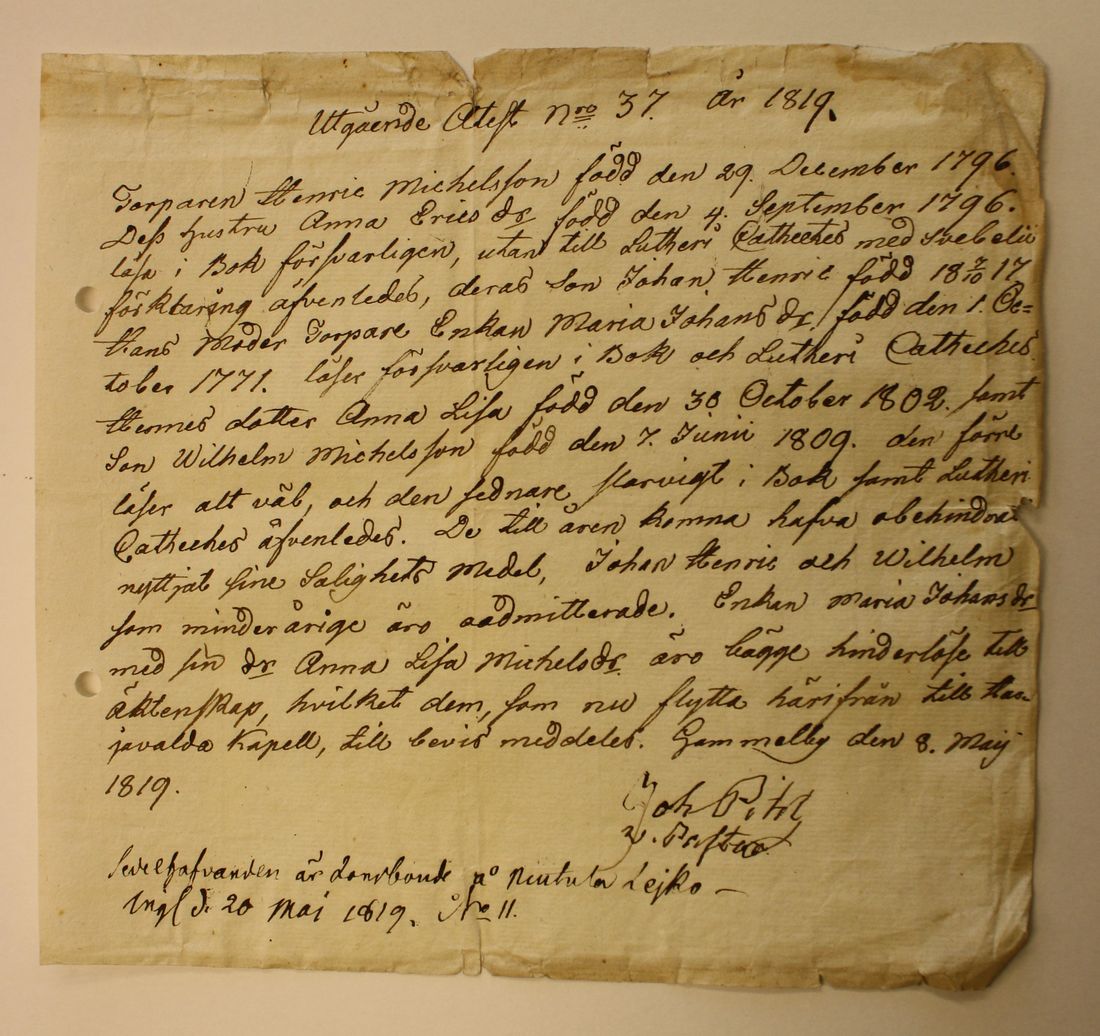 Utgående Atest Nro 37. År 1819.
Torparen Henric Michelsson född den 29. December 1796.
Dess hustru Anna Erics dr född den 4. September 1796.
läsa i Bok försvarligen, utan till Lutheri Catheches med Svebelii
förklaring äfvenledes, deras Son Johan Henric född 18 7/10 17
Hans Moder Torpare Enkan Maria Johans dr. född den 1. Oc=
tober 1771. läser försvarligen i Bok och Lutheri Catheches.
Hennes dotter Anna Lisa född den 30 October 1802. samt
Son Wilhelm Michelsson född den 7. Junii 1809. den förre
läser all väl, och den sednare slarvigt i Bok samt Lutheri
Catheches äfvenledes. De till åren komna hafva obehindrat
nyttjat sine Salighets Medel, Johan Henric och Wilhelm
som minderårige äro oadmitterade. Enkan Maria Johans dr
med sin dr Anna Lisa Michels dr. äro bägge hinderlöse till
äktenskap, hvilket dem, som nu flytta härifrån till Har-
javalda Kapell, till bevis meddeles. Gammelby den 8. Maij
1819.
Joh
v. Pastor
är Landbonde på Lejko –
Ingl d. 20 Maj 1819. No 11.